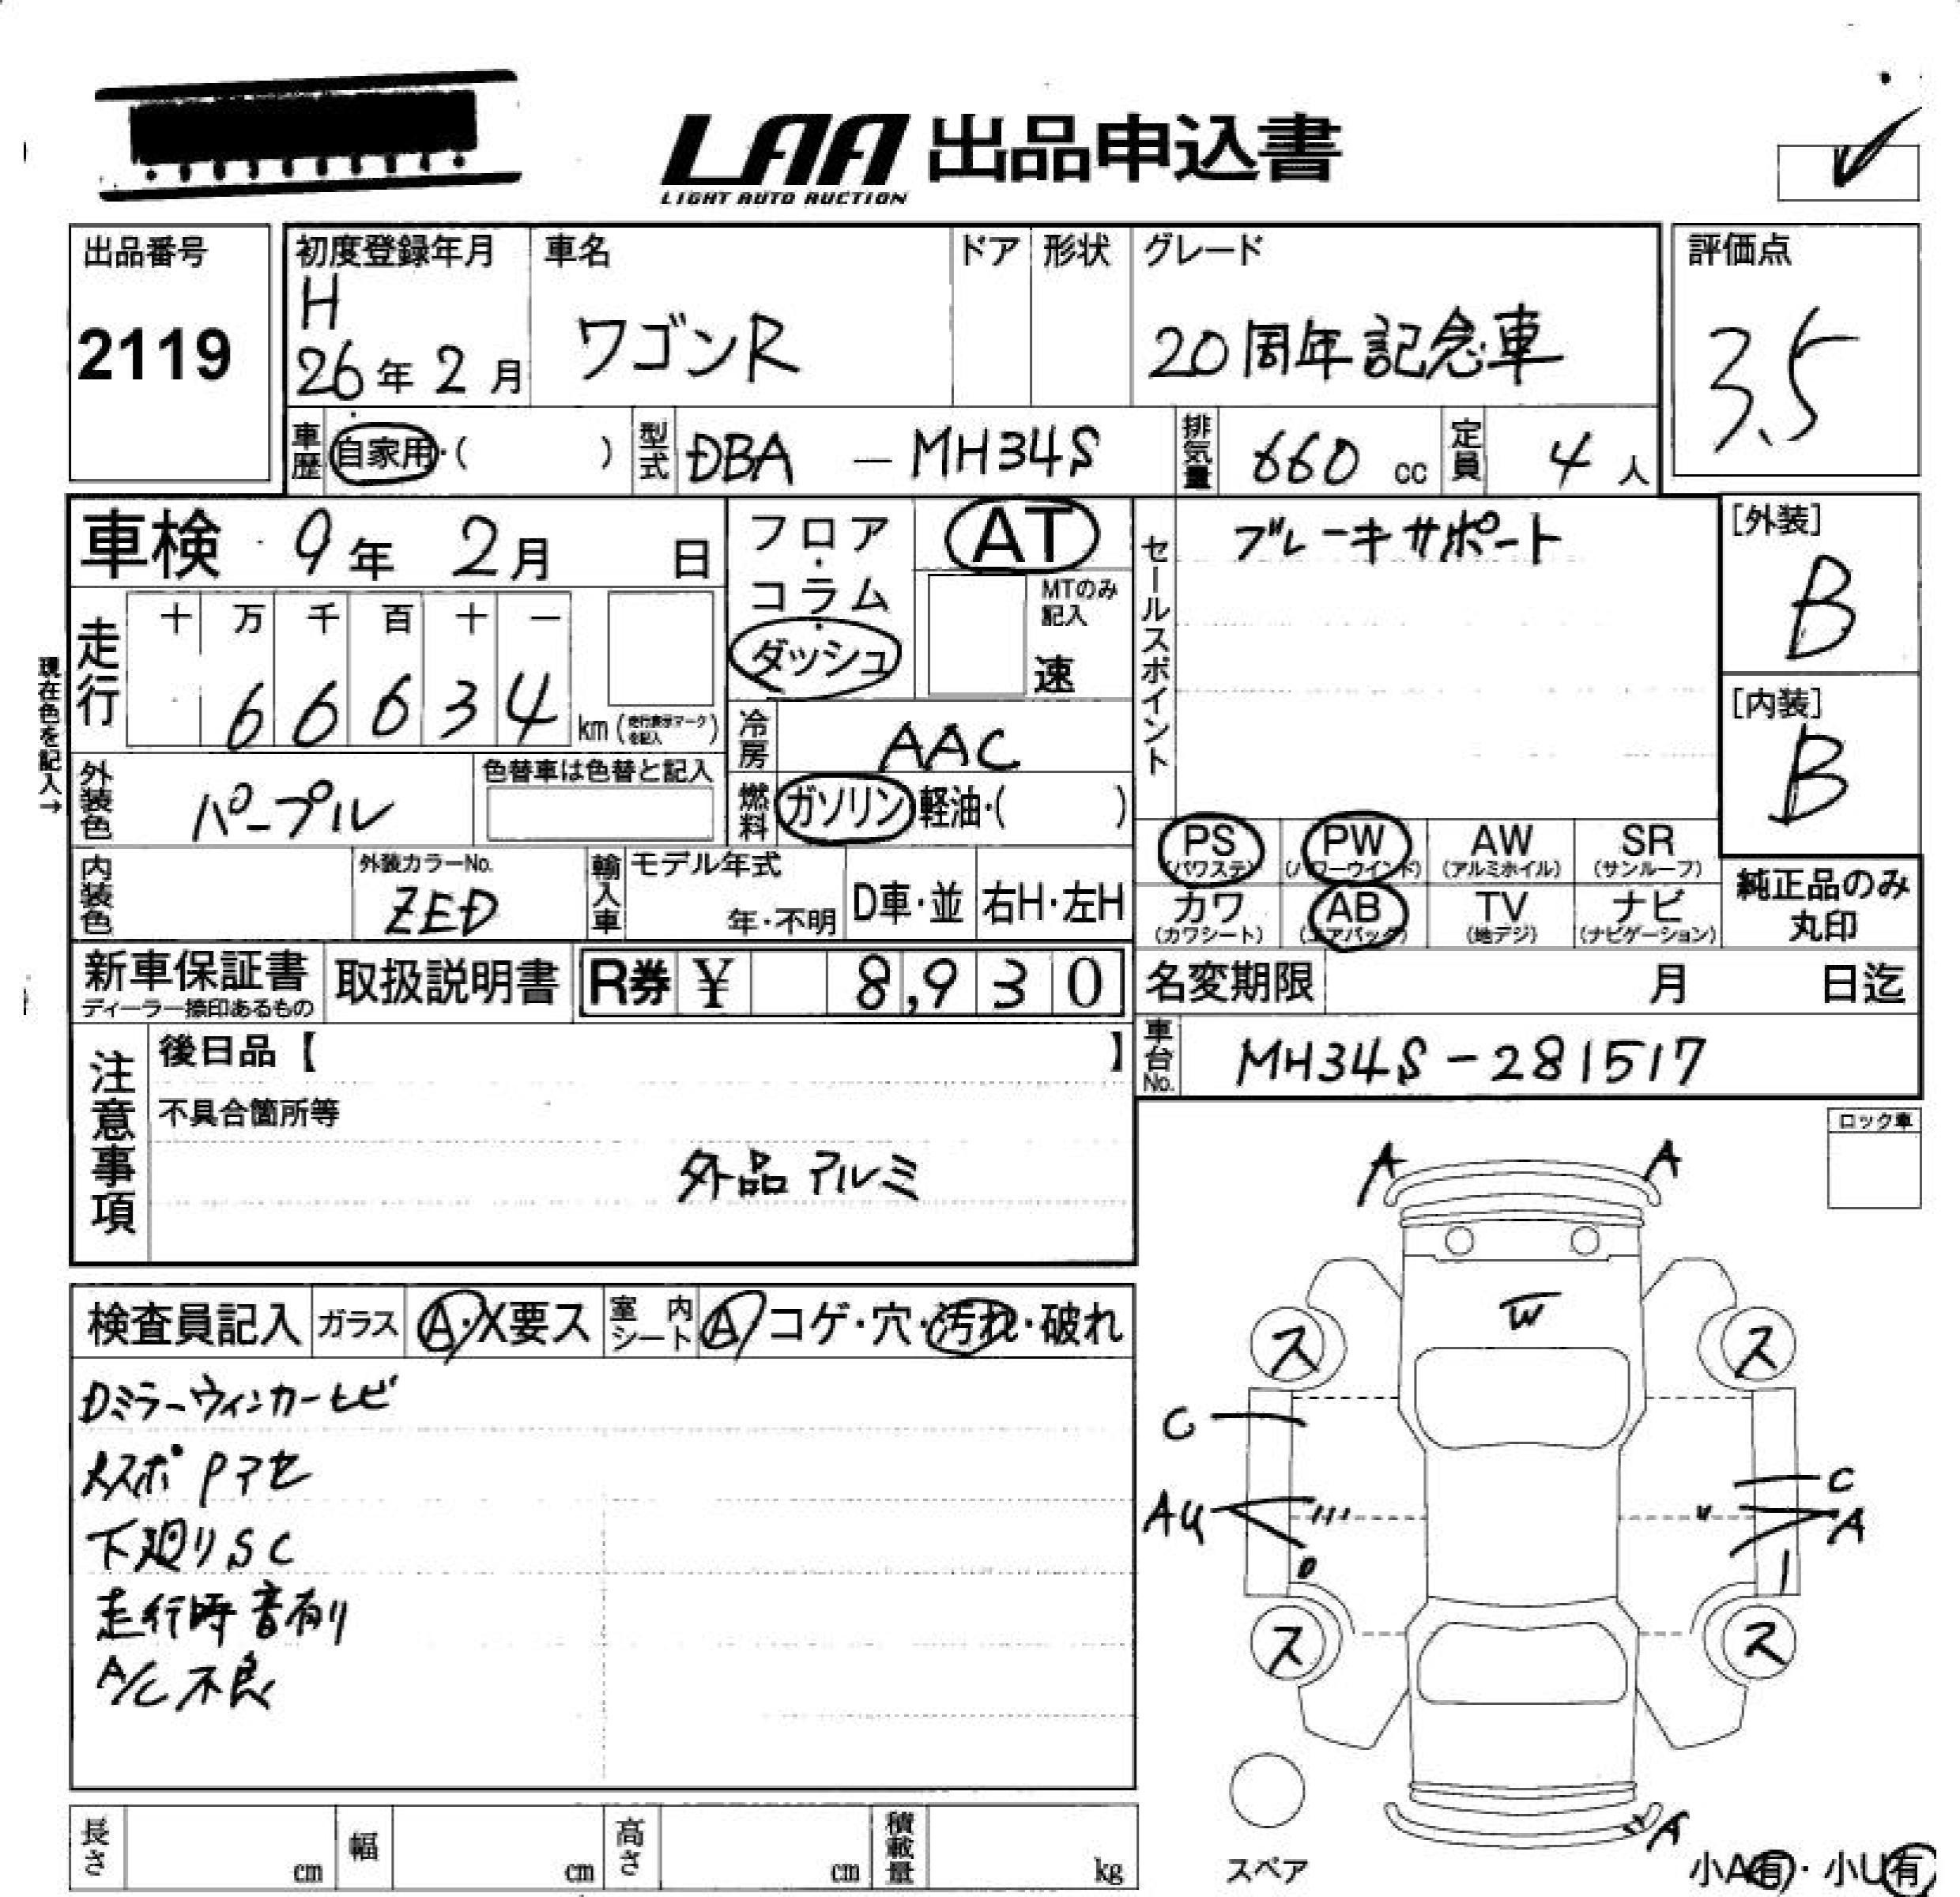 LAA 出品申込書
LIGHT AUTO AUCTION
出品番号
2119
初度登録年月
H
26年2月
車名
ワゴンR
ドア
形状
グレード
20周年記念車
評価点
3.5
車歴 自家用・( )
型式 DBA — MH34S
排気量 660 cc
定員 4 人
車検 9年 2月 日
フロア・コラム・ダッシュ
AT
MTのみ記入
速
セールスポイント
ブレーキサポート
[外装]
B
[内装]
B
現在色を記入→
走行
十 万 千 百 十 一
6 6 6 3 4 km (走行表示マークを記入)
冷房 AAC
燃料 ガソリン・軽油・( )
外装色 パープル
色替車は色替と記入
内装色
外装カラーNo.
ZED
輸入車
モデル年式
年・不明
D車・並
右H・左H
PS (パワステ)
PW (パワーウインド)
AW (アルミホイル)
SR (サンルーフ)
カワ (カワシート)
AB (エアバック)
TV (地デジ)
ナビ (ナビゲーション)
純正品のみ丸印
新車保証書
ディーラー捺印あるもの
取扱説明書
R券 ¥ 8,930
名変期限 月 日迄
車台No. MH34S-281517
注意事項
後日品【 】
不具合箇所等
外品アルミ
ロック車
検査員記入
ガラス A・X要ス
室内シート A・コゲ・穴・汚れ・破れ
Dミラーウィンカーヒビ
ススポ Pアセ
下廻りSC
走行時音有り
A/C不良
A A
W
ス ス
C
C
AU
A
ス ス
A
スペア
小A有・小U有
長さ cm
幅 cm
高さ cm
積載量 kg